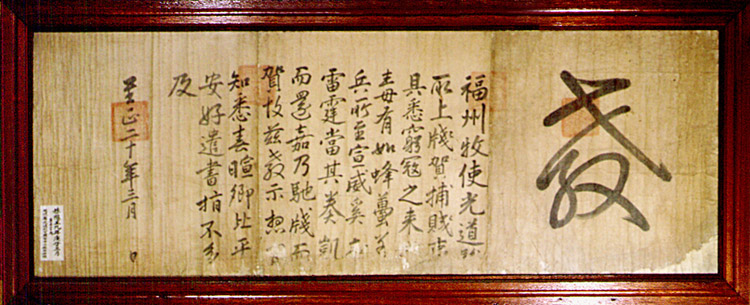 敎
福州牧使光道
所上牋賀捕賊事
具悉窮寇之來
毒有如蜂蠆
兵所至宣威奚
雷霆當其奏凱
而還嘉乃馳牋而
賀故茲敎示想
知悉春暄卿比平
安好遣書指不多
及
至正二十年三月 日